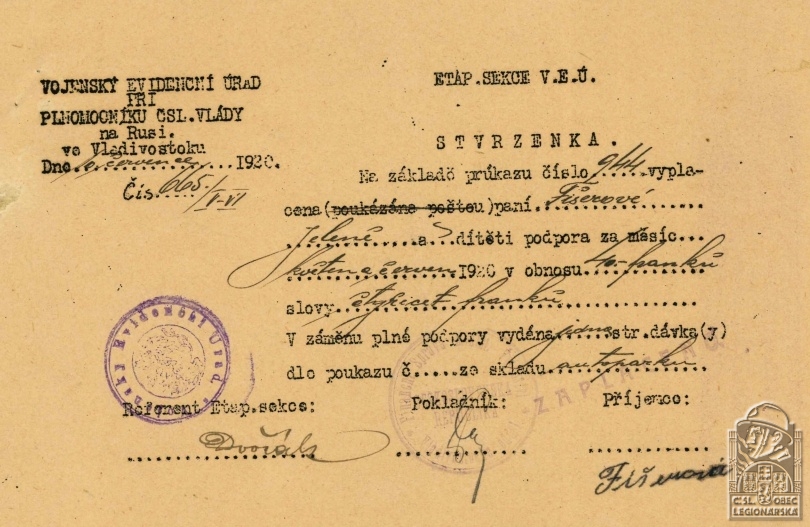 VOJENSKÝ EVIDENČNÍ ÚŘAD
PŘI
PLNOMOCNÍKU ČSL.VLÁDY
na Rusi.
ve Vladivostoku
Dne července 1920.
Čís. 665./V-VI
ETAP.SEKCE V.E.Ú.
STVRZENKA.
Na základě průkazu číslo 944 vypla-
cena(poukázána poštou)paní Fišerové
Jeleně a dítěti podpora za měsíc
květen a červen 1920 v obnosu 40.- franků
slovy čtyřicet franků
V záměnu plné podpory vydána jedna str.dávka(y)
dle poukazu č..... ze skladu autoparku
Referent Etap.sekce:
Pokladník:
Příjemce:
Dvořák
Fišerová
Evidenční Úřad
ZAPLACENO
ČS. OBEC
LEGIONÁŘSKÁ